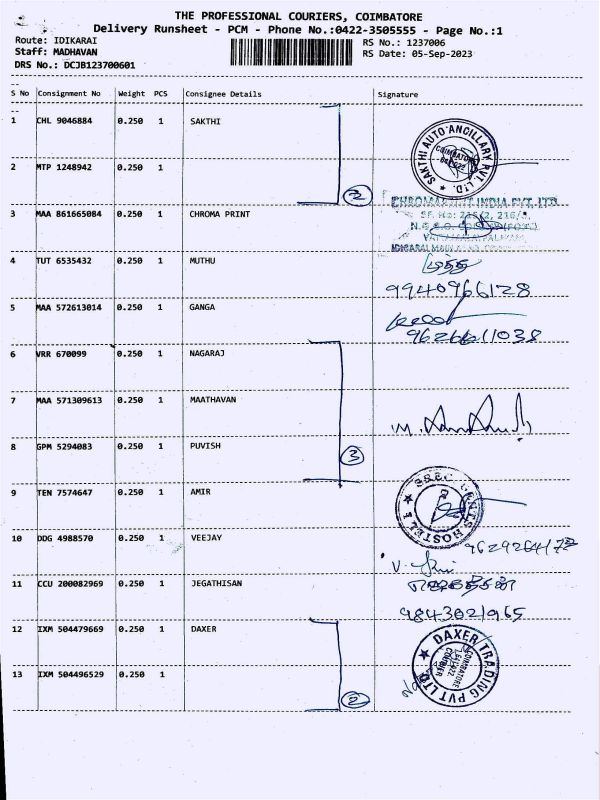 THE PROFESSIONAL COURIERS, COIMBATORE
Delivery Runsheet - PCM - Phone No.:0422-3505555 - Page No.:1
Route: IDIKARAI
RS No.: 1237006
Staff: MADHAVAN
RS Date: 05-Sep-2023
DRS No.: DCJB123700601
S No Consignment No Weight PCS Consignee Details Signature
1 CHL 9046884 0.250 1 SAKTHI
SAKTHI AUTO ANCILLARY PVT. LTD.
COIMBATORE
2 MTP 1248942 0.250 1
2
3 MAA 861665084 0.250 1 CHROMA PRINT
CHROMAPRINT INDIA PVT. LTD.
SF. No: 215/2, 216/
4 TUT 6535432 0.250 1 MUTHU
முத்து
9940966128
5 MAA 572613014 0.250 1 GANGA
9626611038
6 VRR 670099 0.250 1 NAGARAJ
7 MAA 571309613 0.250 1 MAATHAVAN
M.
8 GPM 5294083 0.250 1 PUVISH
3
9 TEN 7574647 0.250 1 AMIR
SREC GENTS HOSTEL
10 DDG 4988570 0.250 1 VEEJAY
9629264172
V.
11 CCU 200082969 0.250 1 JEGATHISAN
9843021965
12 IXM 504479669 0.250 1 DAXER
DAXER TRADING PVT LTD
COIMBATORE
13 IXM 504496529 0.250 1
2